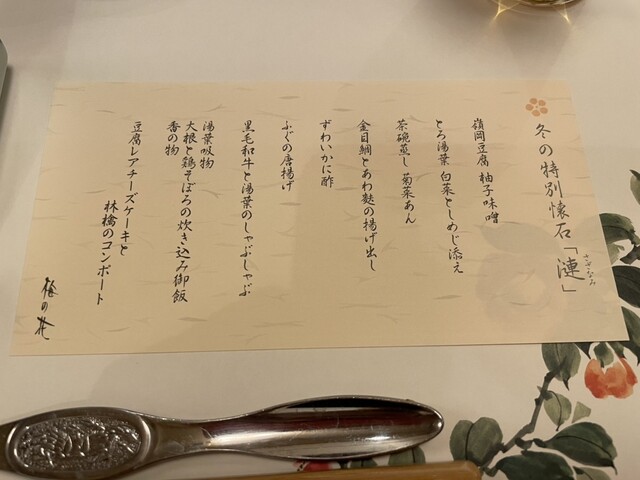 冬の特別懐石「漣」
さざなみ
嶺岡豆腐 柚子味噌
とろ湯葉 白菜としめじ添え
茶碗蒸し 菊菜あん
金目鯛とあわ麩の揚げ出し
ずわいかに酢
ふぐの唐揚げ
黒毛和牛と湯葉のしゃぶしゃぶ
湯葉吸物
大根と鶏そぼろの炊き込み御飯
香の物
豆腐レアチーズケーキと
林檎のコンポート
梅の花